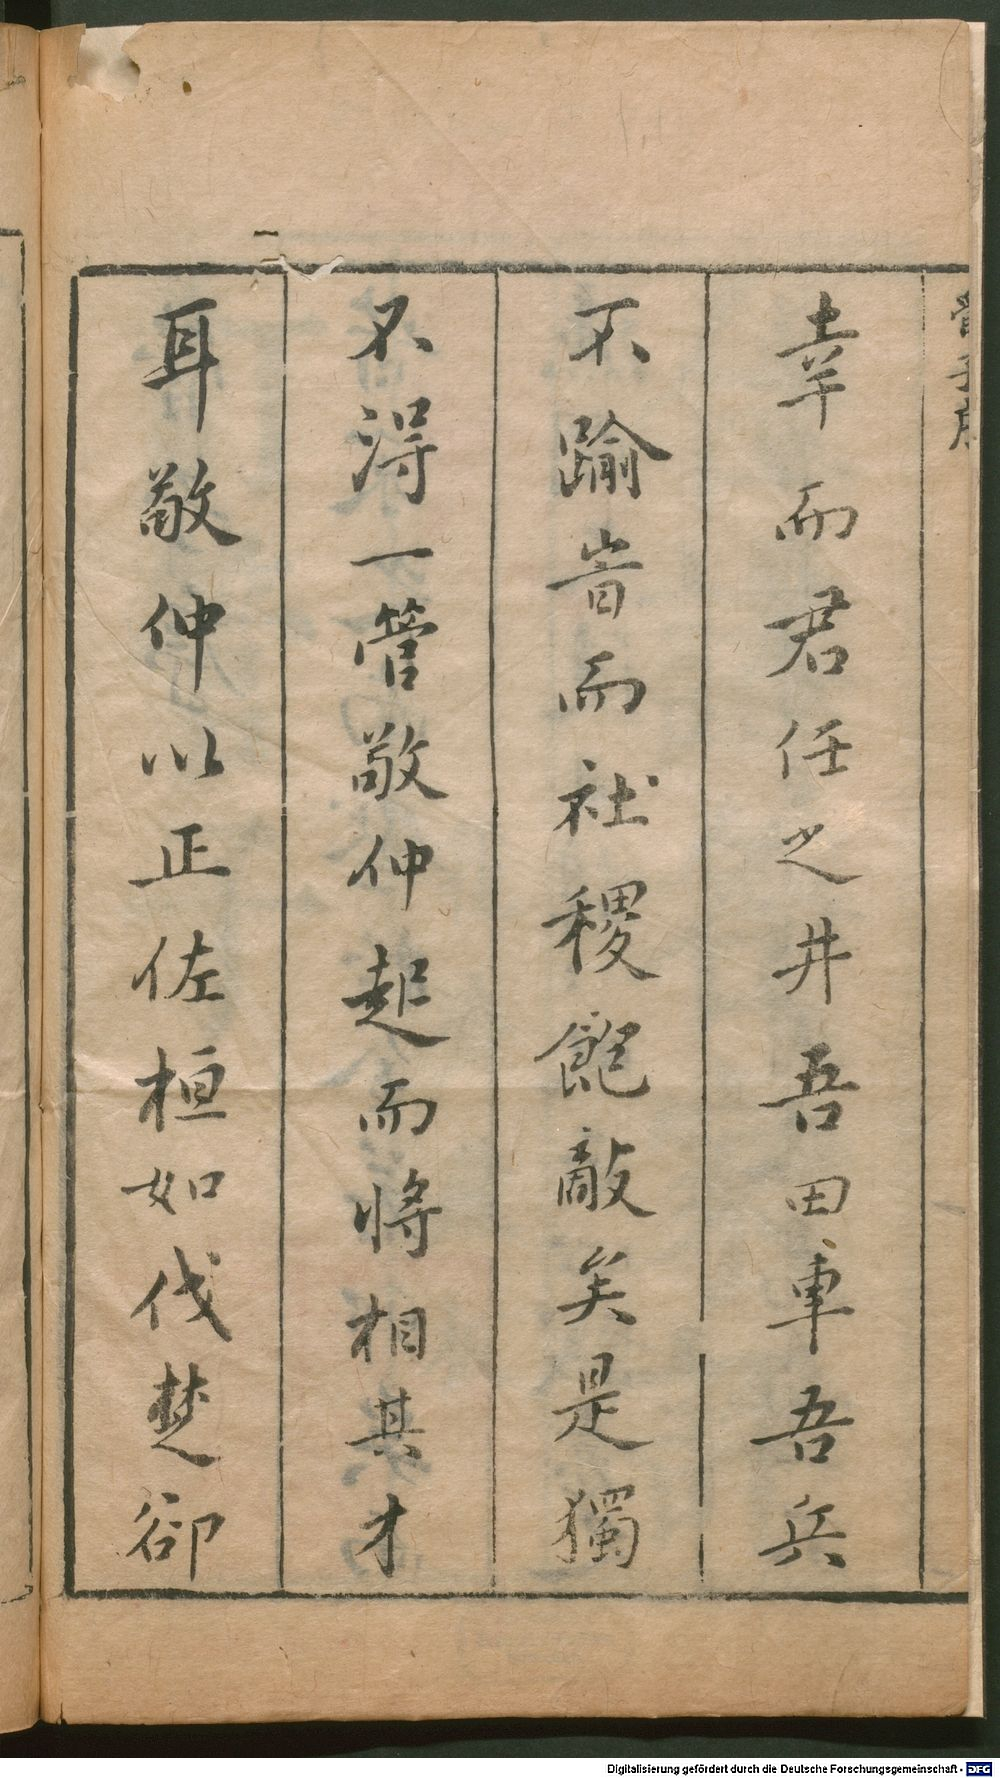 管子序
幸而君任之井吾田車吾兵
不踰旹而社稷飽敵矣是獨
不淂一管敬仲起而將相其才
耳敬仲以正佐桓如伐楚郤
Digitalisierung gefördert durch die Deutsche Forschungsgemeinschaft - DFG